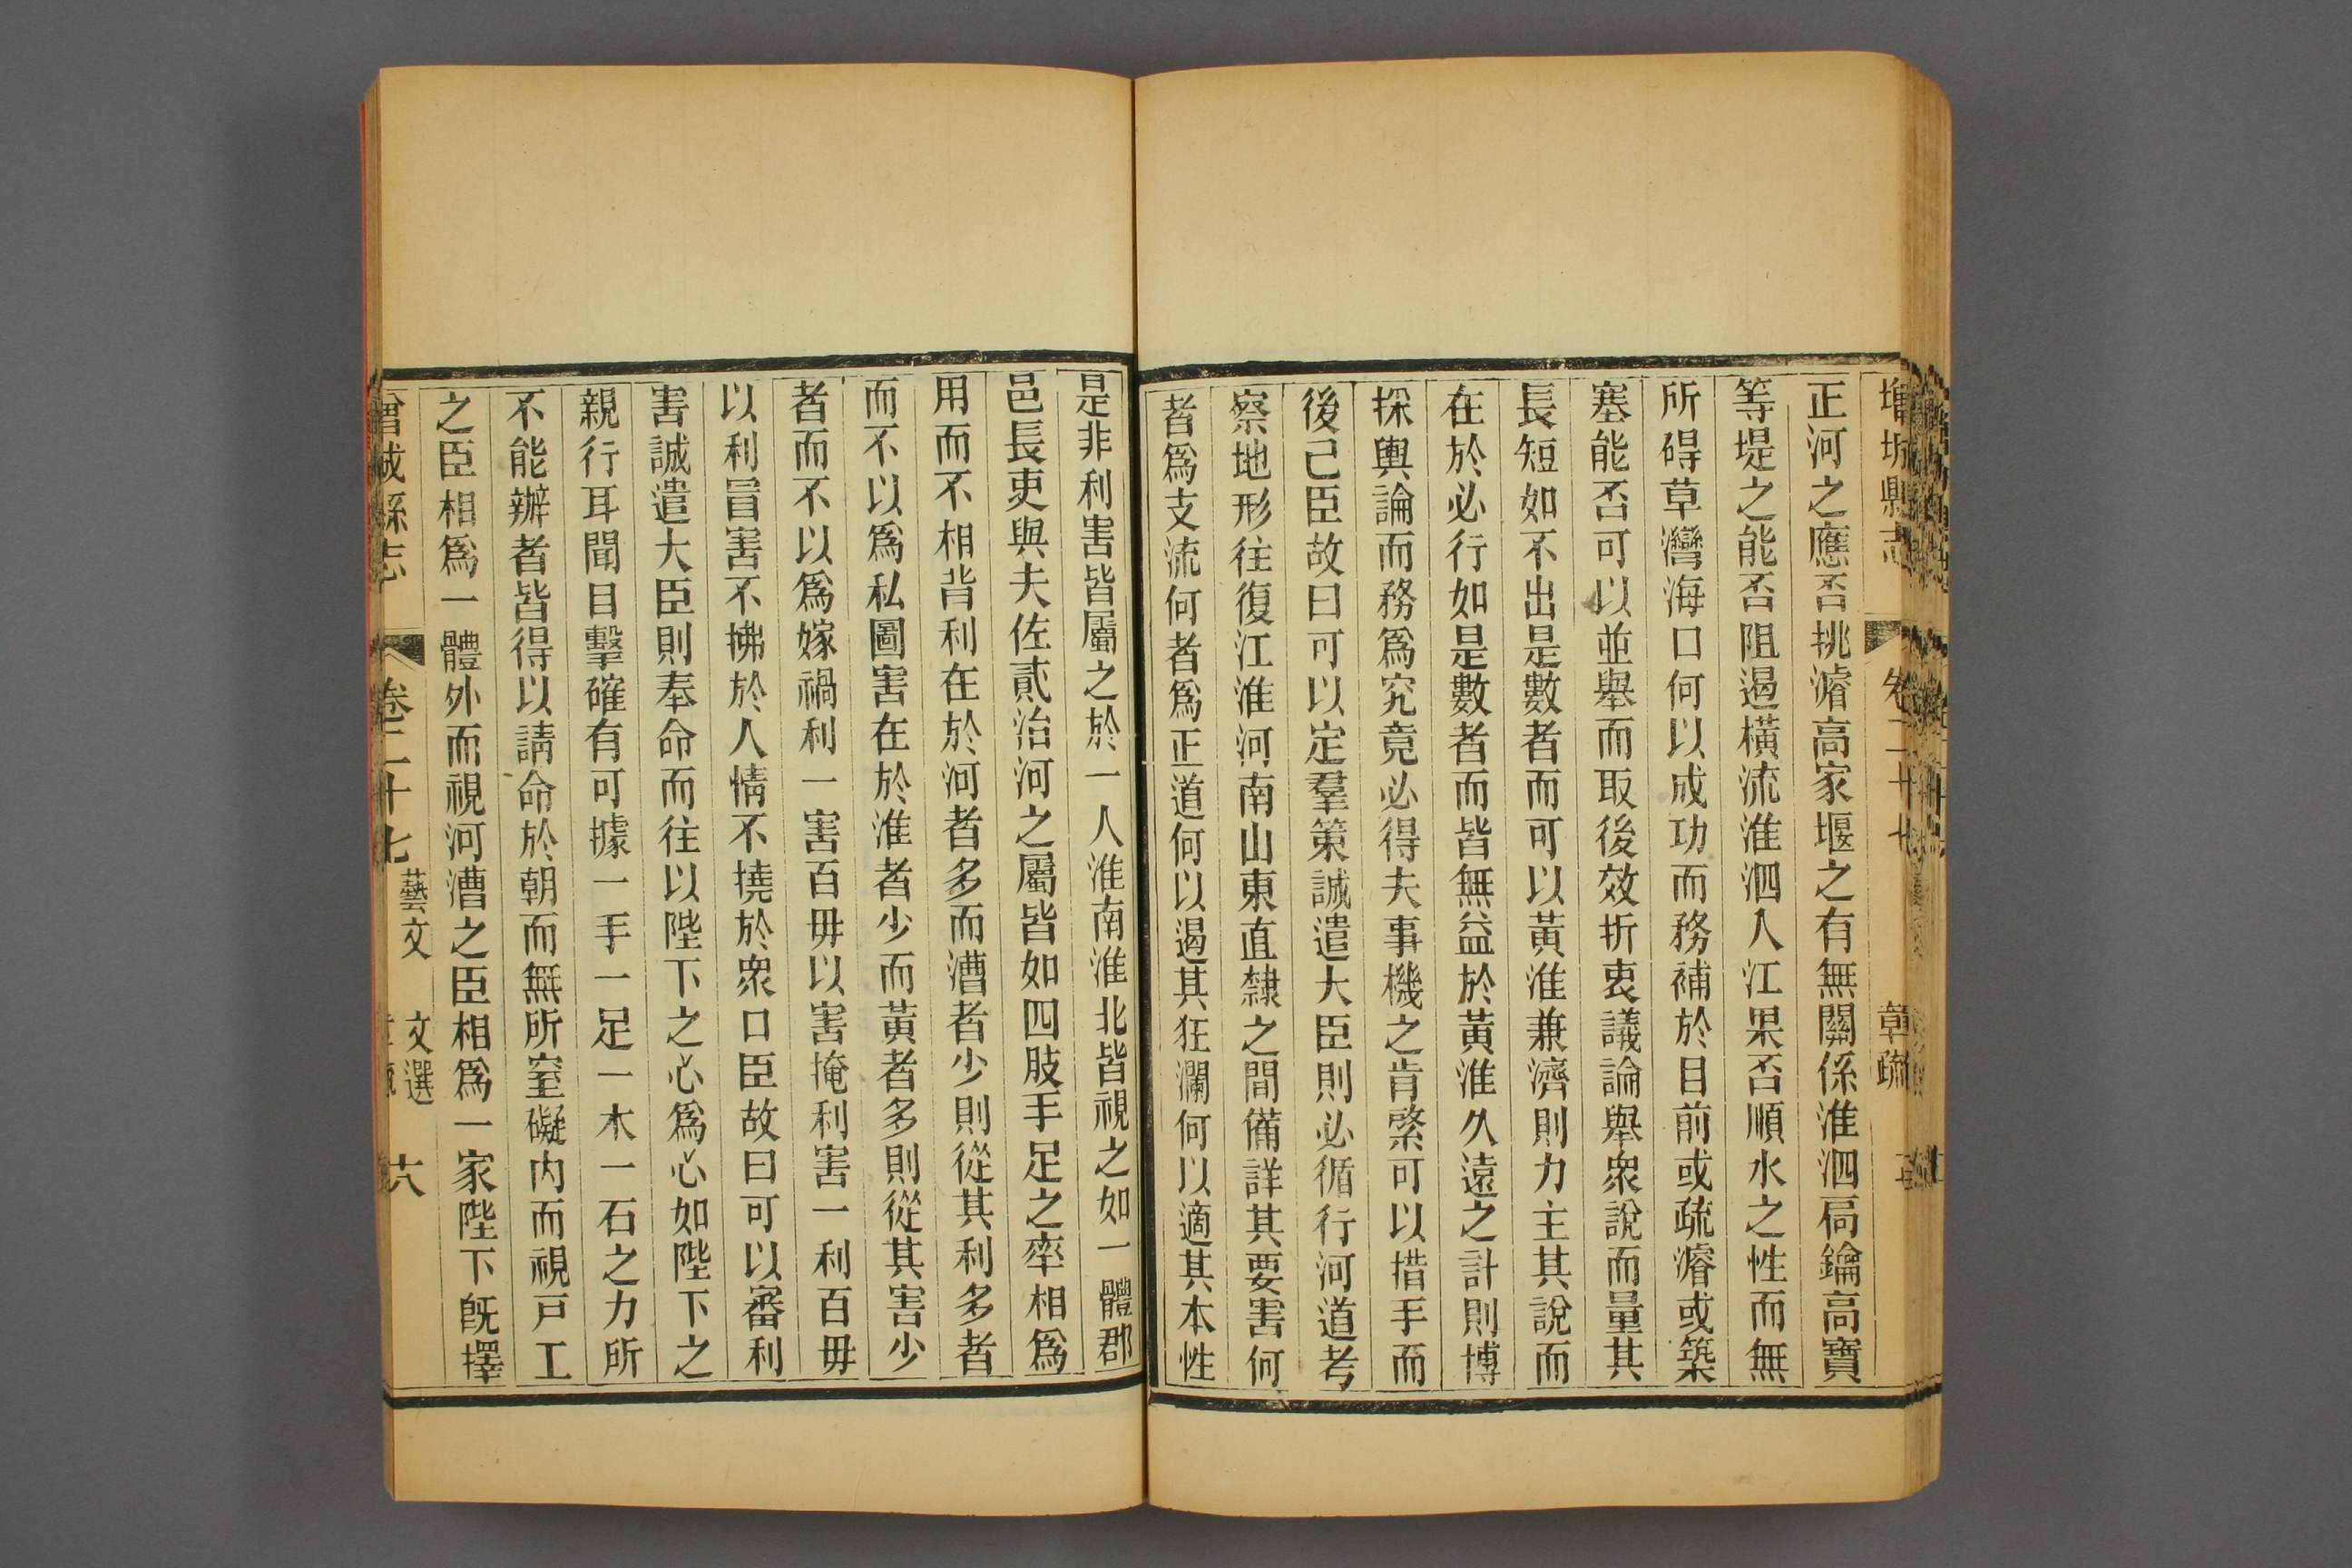 增城縣志 卷二十七 章疏
正河之應否挑濬高家堰之有無關係淮泗扃鑰高寶
等堤之能否阻遏橫流淮泗入江果否順水之性而無
所碍草灣海口何以成功而務補於目前或疏濬或築
塞能否可以並舉而取後效折衷議論舉衆說而量其
長短如不出是數者而可以黃淮兼濟則力主其說而
在於必行如是數者而皆無益於黃淮久遠之計則博
採輿論而務爲究竟必得夫事機之肯綮可以措手而
後已臣故曰可以定羣策誠遣大臣則必循行河道考
察地形往復江淮河南山東直隸之間備詳其要害何
者爲支流何者爲正道何以遏其狂瀾何以適其本性
是非利害皆屬之於一人淮南淮北皆視之如一體郡
邑長吏與夫佐貳治河之屬皆如四肢手足之率相爲
用而不相背利在於河者多而漕者少則從其利多者
而不以爲私圖害在於淮者少而黃者多則從其害少
者而不以爲嫁禍利一害百毋以害掩利害一利百毋
以利冒害不拂於人情不撓於衆口臣故曰可以審利
害誠遣大臣則奉命而往以陛下之心爲心如陛下之
親行耳聞目擊確有可據一手一足一木一石之力所
不能辦者皆得以請命於朝而無所窒礙內而視戸工
之臣相爲一體外而視河漕之臣相爲一家陛下旣擇
增城縣志 卷二十七 藝文 文選 六